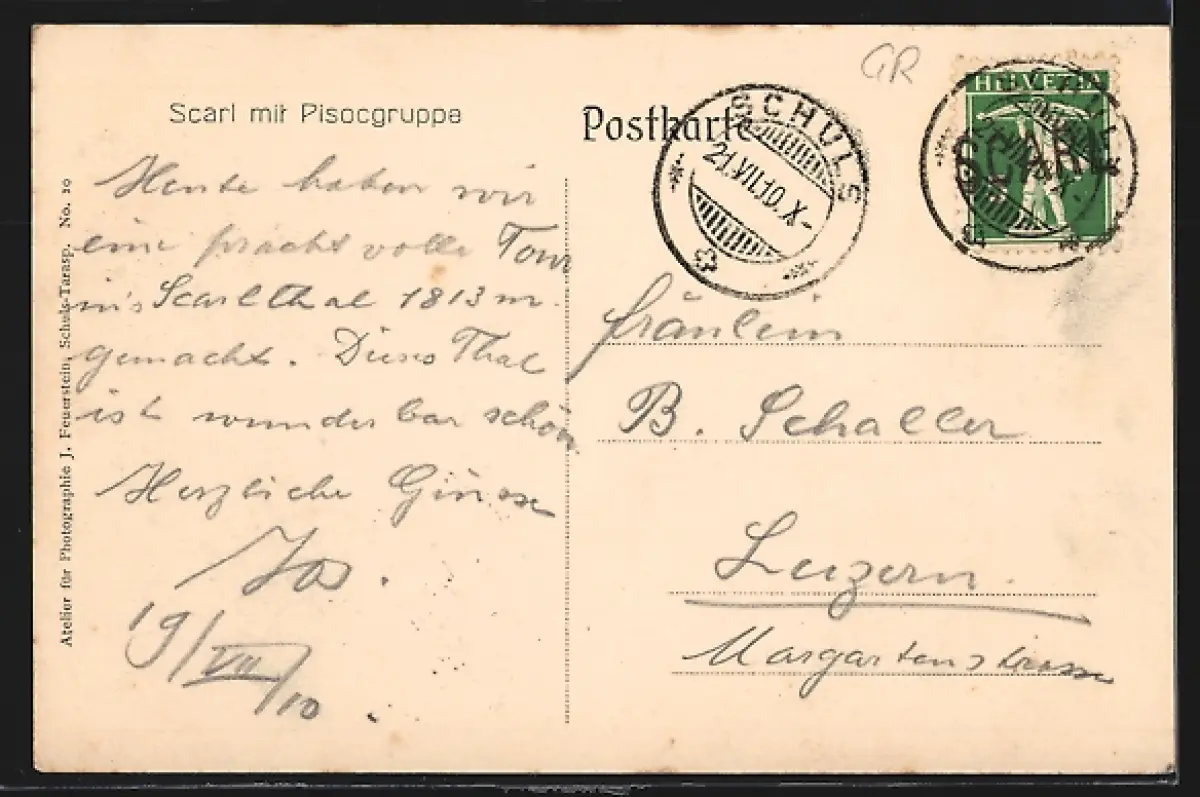 GR
HELVETIA
Scarl mit Pisocgruppe
Postkarte
SCHULS
21.VII.10.X-
SCARL
Heute haben wir
eine pracht volle Tour
in's Scarlthal 1813 m.
gemacht. Dieses Thal
ist wunderbar schön
Herzliche Grüsse
Jos.
19/VII/10.
Fräulein
B. Schaller
Luzern.
Murgartenstrasse
Atelier für Photographie J. Feuerstein, Schuls-Tarasp. No. 10